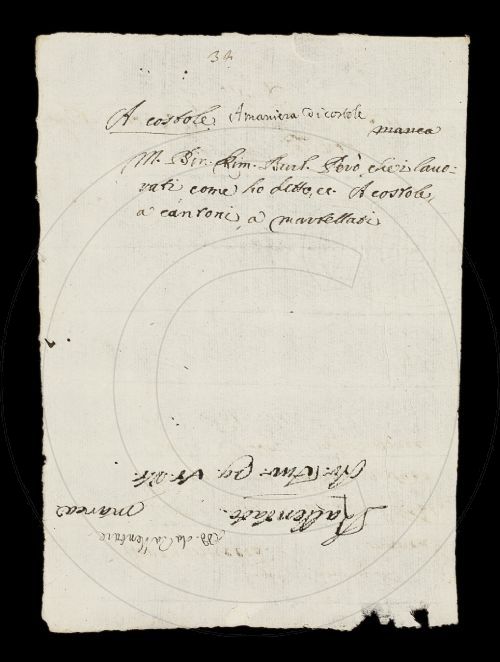 34
A costole. A maniera di costole
manca
M. Bin. rim. burl. Però che i lavo-
rati come ho detto, ec. A costole,
a cantoni, a martellati
Rallentare.
manca
da Rallentare